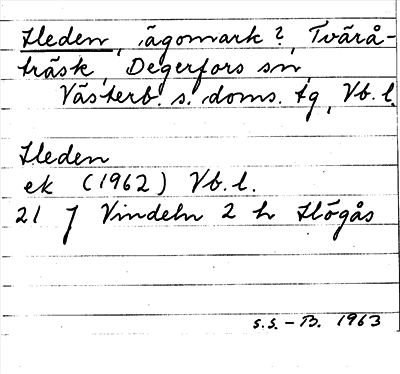 Heden, ägomark?, Tvärå-
träsk, Degerfors sn,
Västerb. s. doms. tg, Vb. l.
Heden
ek (1962) Vb. l.
21 J Vindeln 2 h Högås
S.S. - B. 1963